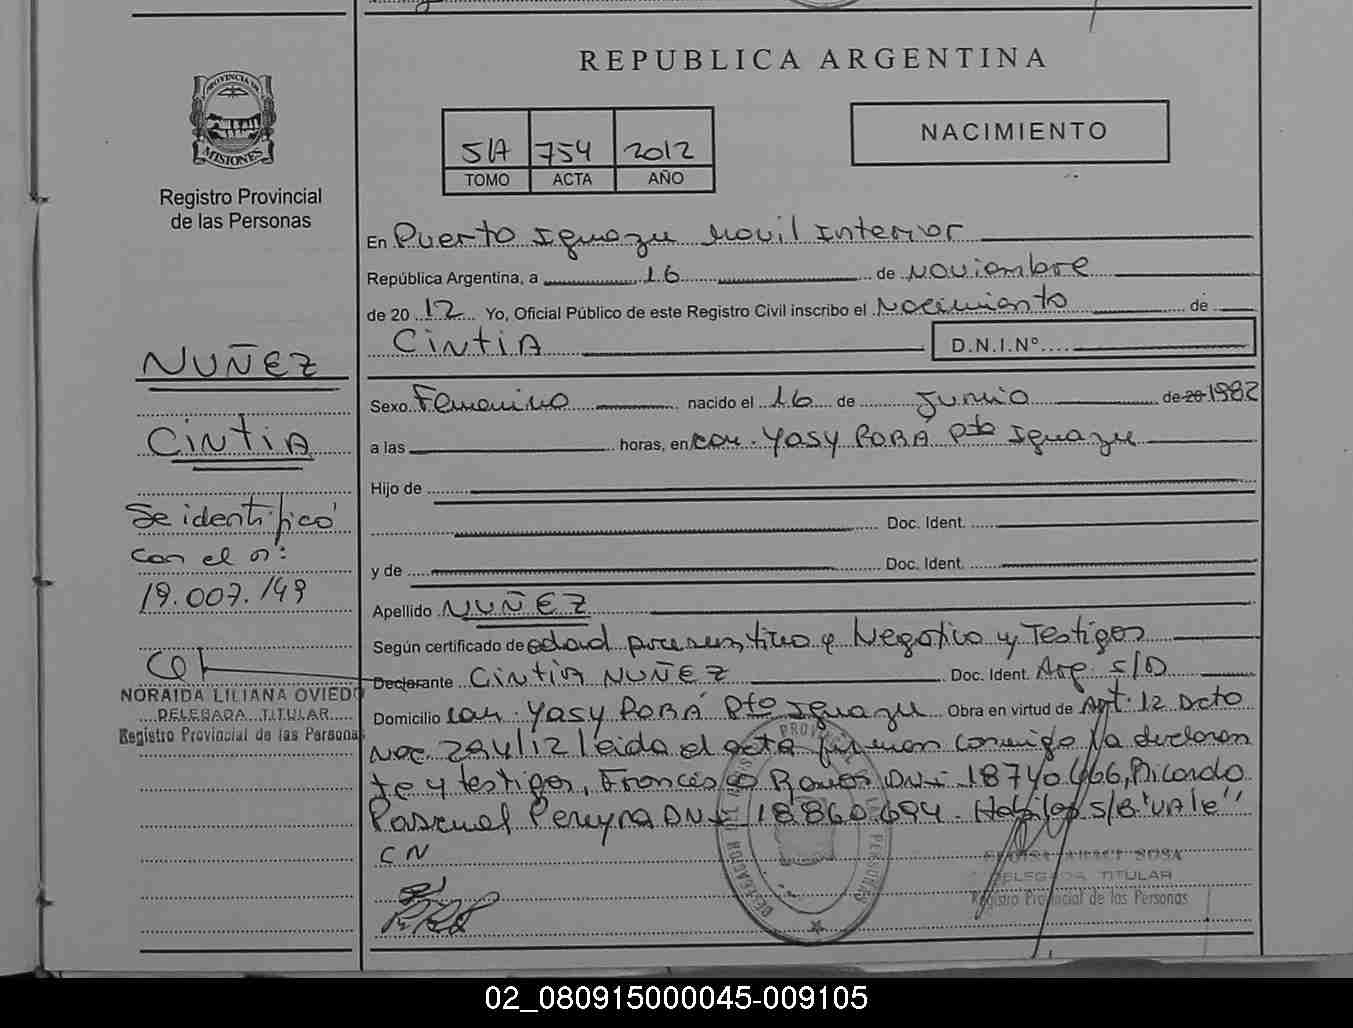 REPUBLICA ARGENTINA
PROVINCIA DE
MISIONES
Registro Provincial
de las Personas
5/A 754 2012
TOMO ACTA AÑO
NACIMIENTO
En Puerto Iguazu Movil Interior
República Argentina, a 16 de Noviembre
de 20 12 Yo, Oficial Público de este Registro Civil inscribo el Nacimiento de
CintiA D.N.I.Nº
NUÑEZ
CintiA
Se identificó
con el nº:
19.007.149
NORAIDA LILIANA OVIEDO
DELEGADA TITULAR
Registro Provincial de las Personas
Sexo Femenino nacido el 16 de Junio de 20 1982
a las horas, en Com. Yasy PORÁ Pto Iguazu
Hijo de
Doc. Ident.
y de Doc. Ident.
Apellido NUÑEZ
Según certificado de edad presuntiva y Negativa y Testigos
Declarante CintiA NUÑEZ Doc. Ident. Arg. S/D
Domicilio Com Yasy PORÁ Pto Iguazu Obra en virtud de Art. 12 Dcto
Nac. 294/12 leida el acta firman conmigo la declaran
te y testigos, Francisco Ramos DNI 18740.666, Ricardo
Pascual Pereyra DNI 18.860.694. S/B "VAle"
CN
DELEGADA TITULAR
Registro Provincial de las Personas
02_080915000045-009105